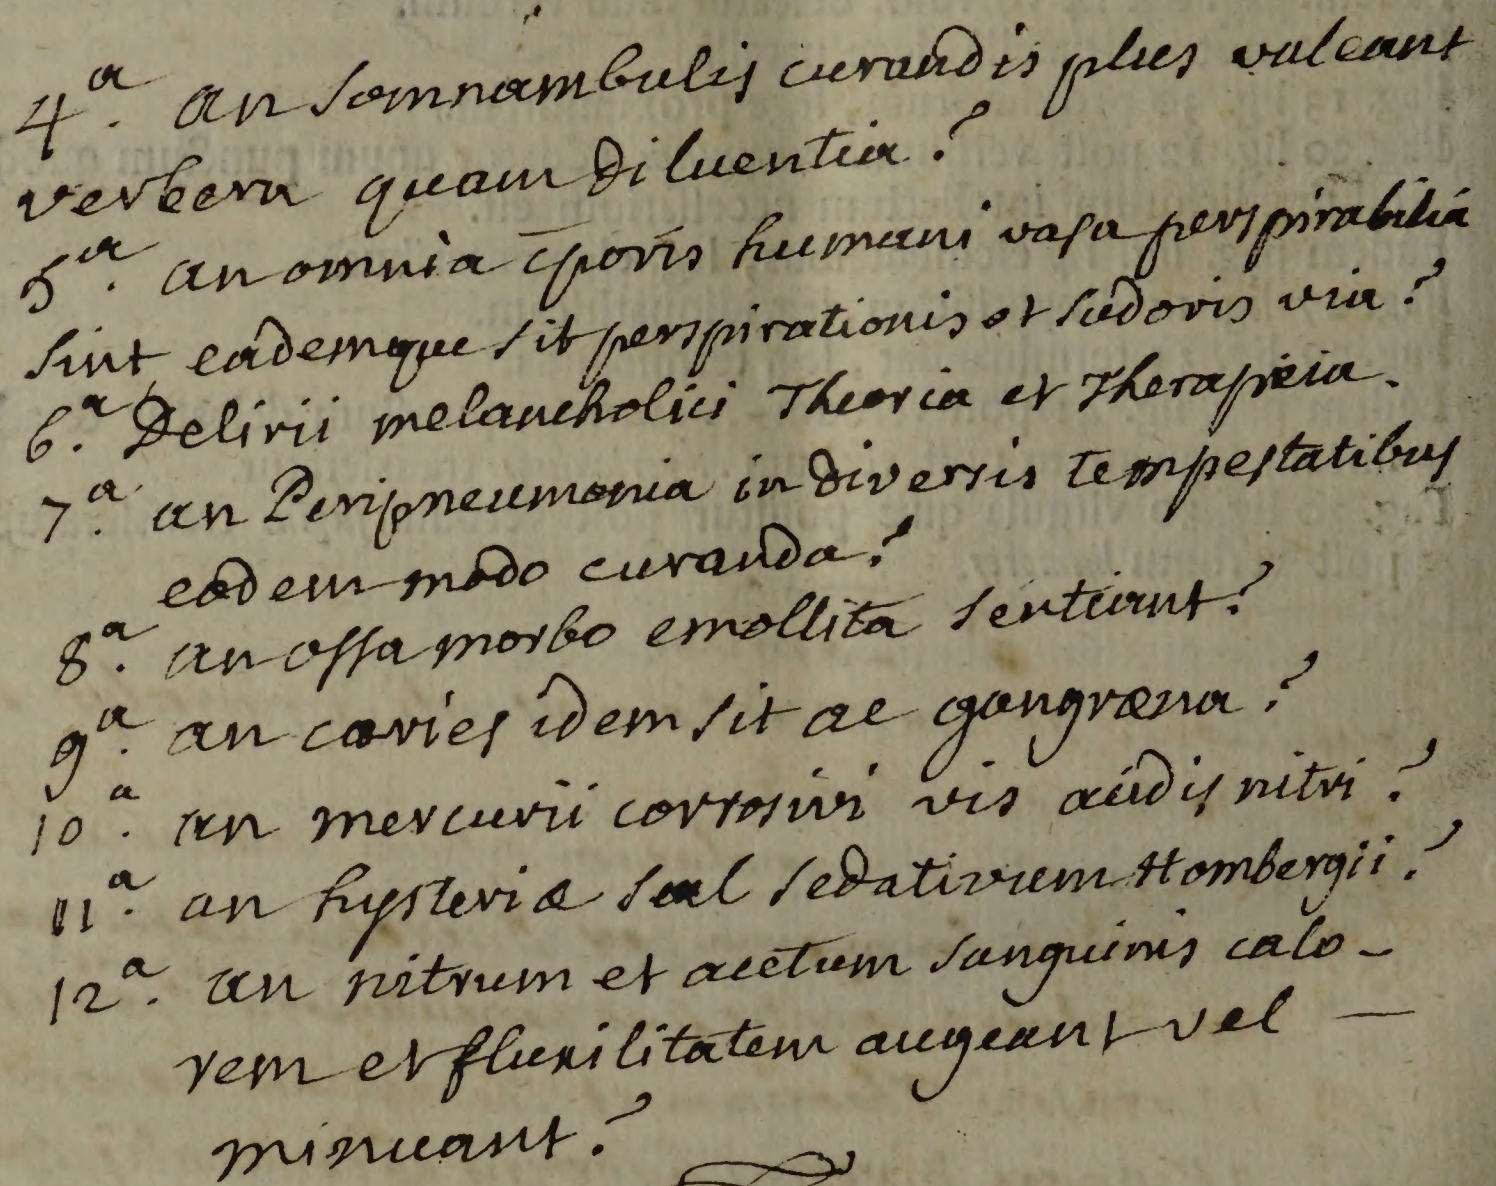 4ª. an somnambulis curandis plus valeant
verbera quam diluentia?
5ª. an omnia c̄poris humani vasa perspirabilia
sint, eademque sit perspirationis et sudoris via?
6ª. Delirii melancholici Theoria et Therapeia.
7ª. an Peripneumonia in diversis tempestatibus
eodem modo curanda?
8ª. an ossa morbo emollita sentiant?
9ª. an caries idem sit ac gangræna?
10ª. an mercurii corrosivi vis acidis nitri?
11ª. an hysteriæ sal sedativum Hombergii?
12ª. an nitrum et acetum sanguinis calo-
rem et fluxilitatem augeant vel —
minuant?